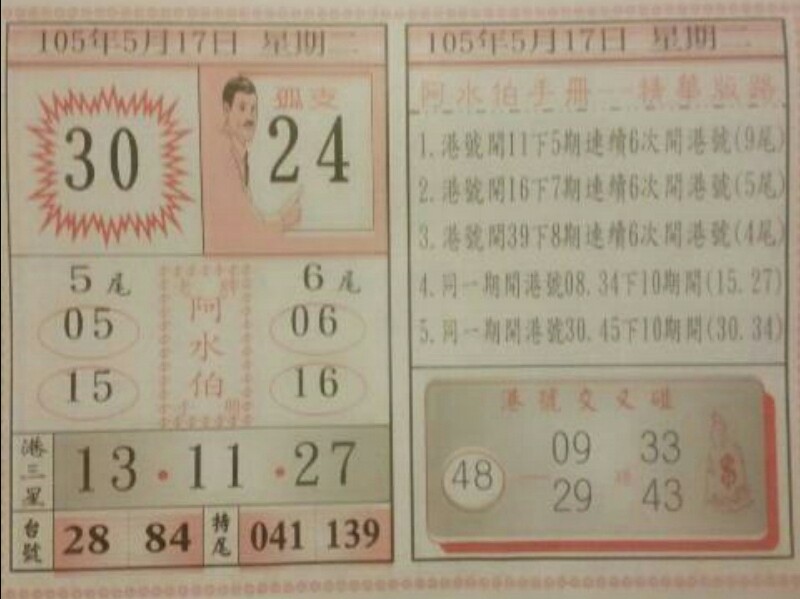 105年5月17日 星期二
30
孤支
24
5尾
6尾
05
06
15
16
阿水伯
港三星
13·11·27
台號
28 84
特尾
041 139
105年5月17日 星期二
阿水伯手冊--精華版路
1.港號開11下5期連續6次開港號(9尾)
2.港號開16下7期連續6次開港號(5尾)
3.港號開39下8期連續6次開港號(4尾)
4.同一期開港號08.34下10期開(15.27)
5.同一期開港號30.45下10期開(30.34)
港號交叉碰
48
09 33
29 43
$